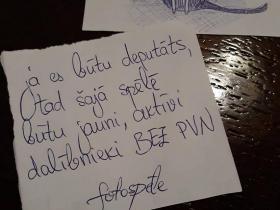 ja es būtu deputāts,
tad šajā spēlē
būtu jauni, aktīvi
dalībnieki BEZ PVN
fotospēle